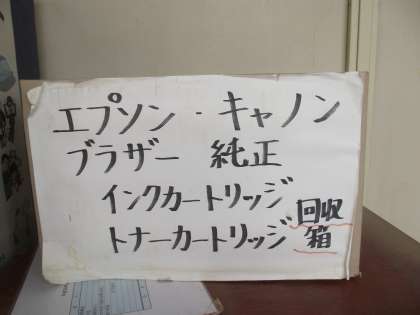 エプソン・キャノン
ブラザー 純正
インクカートリッジ
トナーカートリッジ
回収
箱